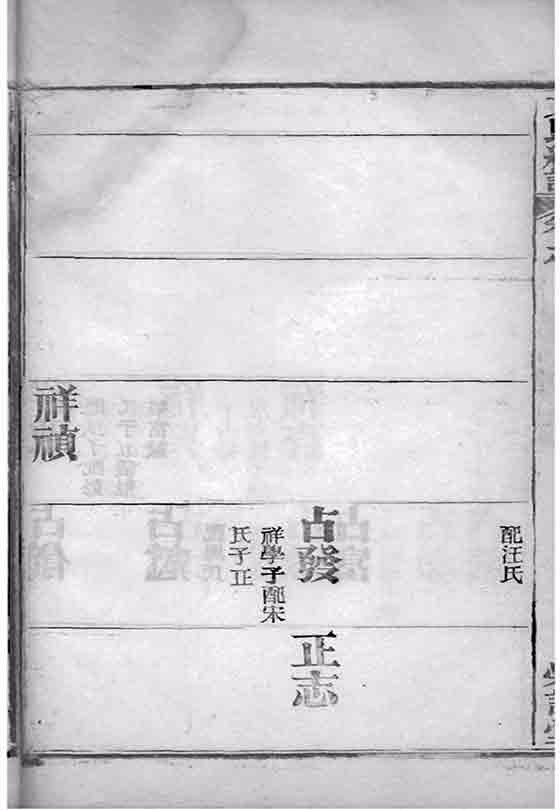 配汪氏
占發
祥學子配宋
氏子正
正志
祥禎